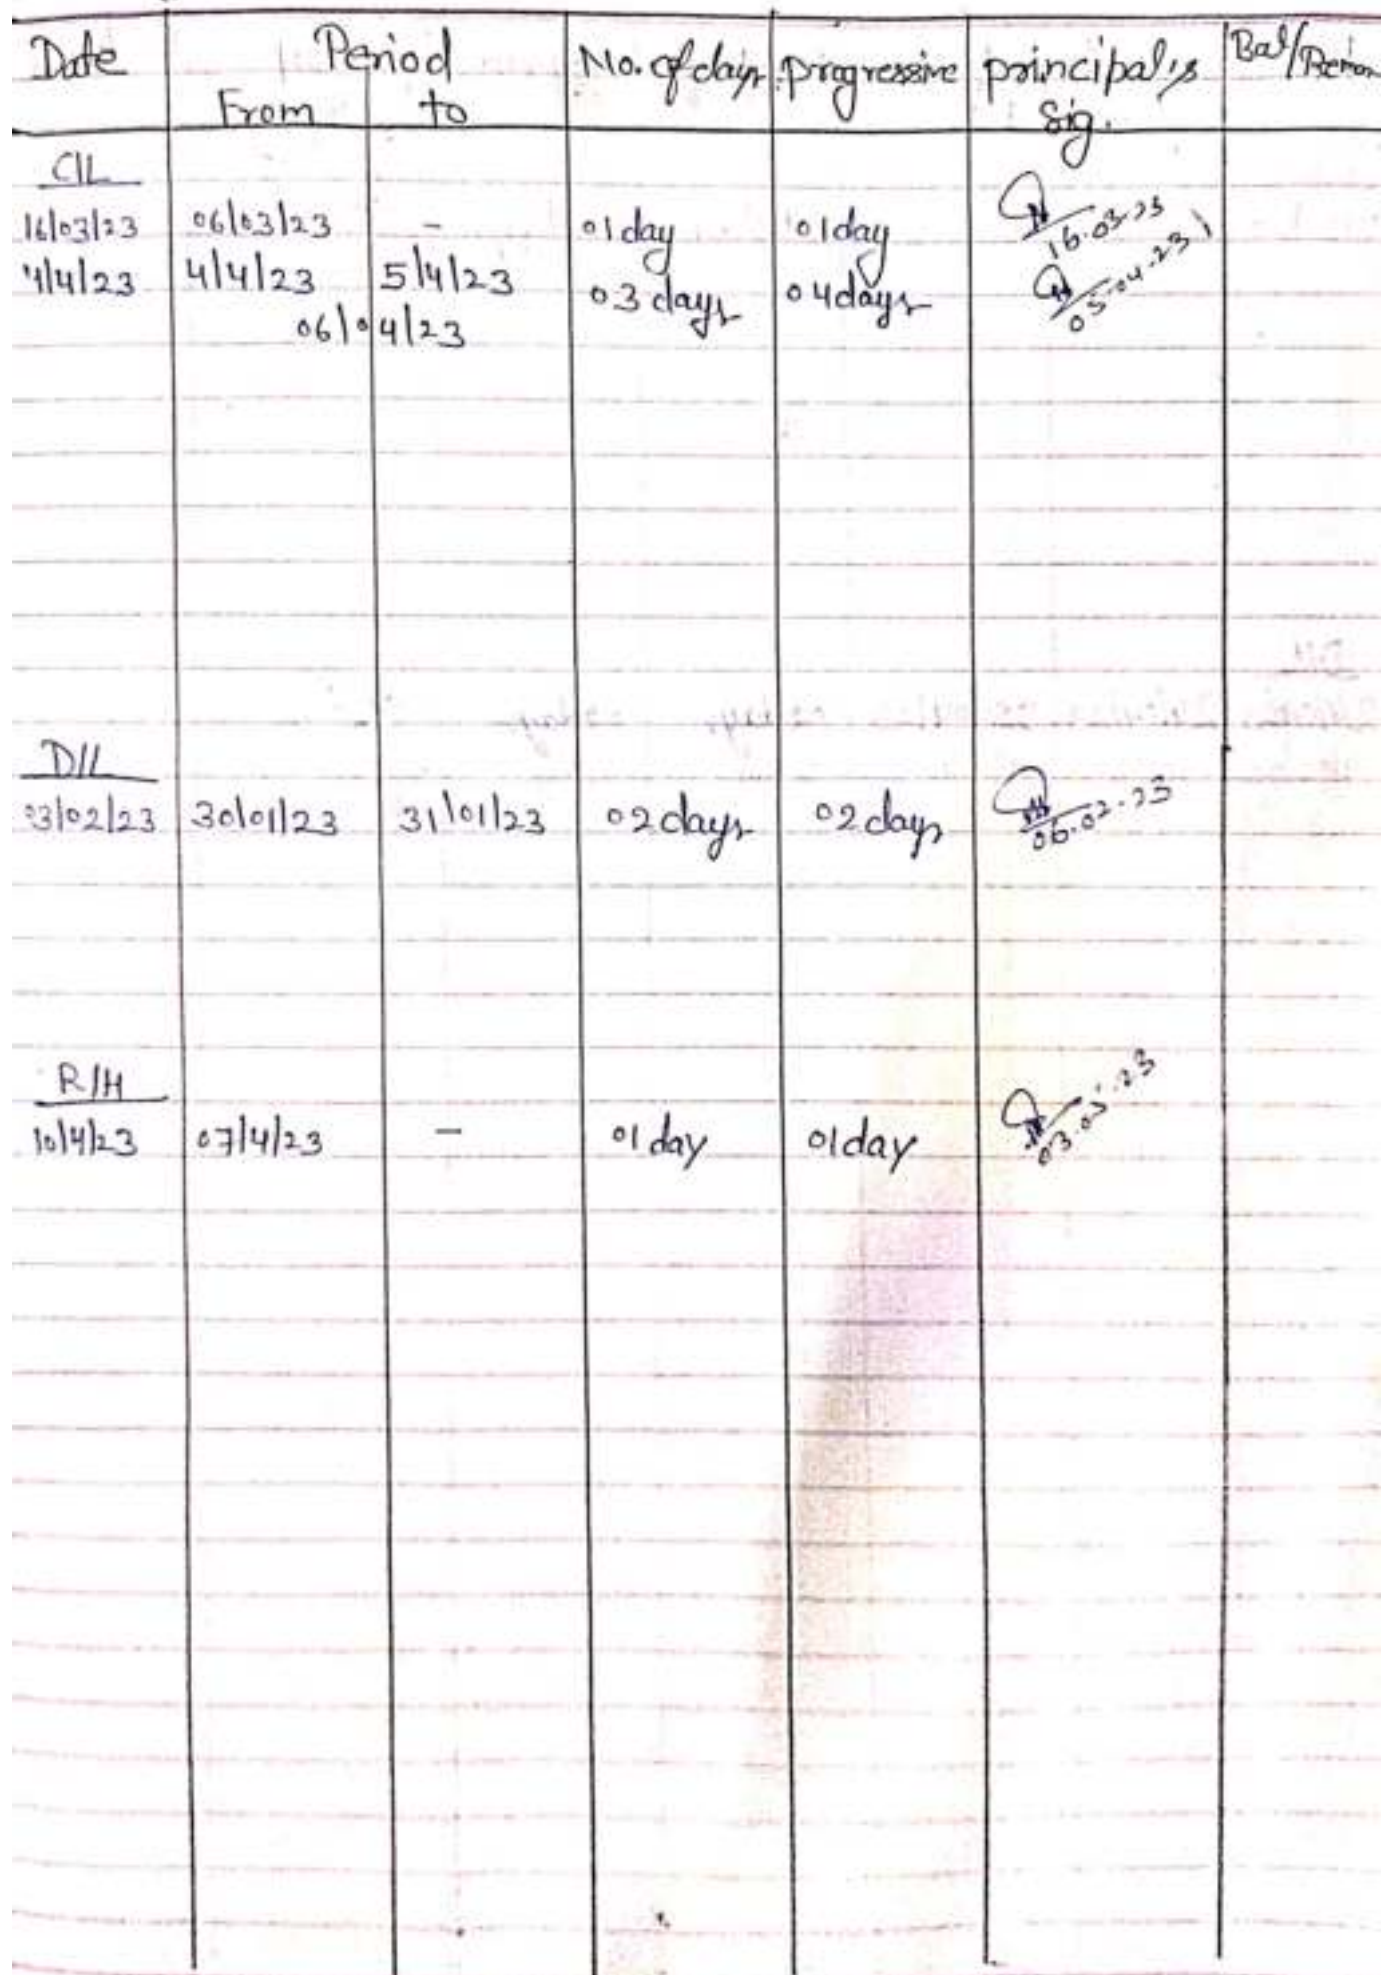 Date Period No. of days progressive principal's Bal/Remar
From to Sig.
C/L
16/03/23 06/03/23 - 01 day 01 day 16.03.23
4/4/23 4/4/23 5/4/23 03 days 04 days 05.04.23
06/04/23
D/L
03/02/23 30/01/23 31/01/23 02 days 02 days 06.02.23
R/H
10/4/23 07/4/23 - 01 day 01 day 03.05.23